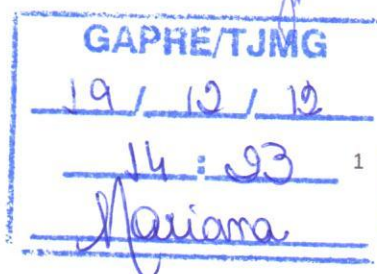 GAPRE/TJMG
19 / 12 / 12
14 : 23 1
Mariana